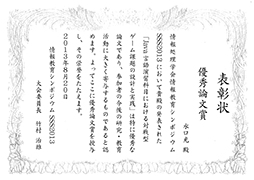 表彰状
優秀論文賞
水口充 殿
情報処理学会情報教育シンポジウム
SSS2013において貴殿の発表された
「Java言語演習科目における対戦型
ゲーム課題の設計と実践」は特に優秀な
論文であり、参加者の今後の研究・教育
活動に大きく寄与するものであると認
めます。よってここに優秀論文賞を授与
し、その栄誉をたたえます。
2013年8月20日
情報教育シンポジウム SSS2013
大会委員長 竹村 治雄